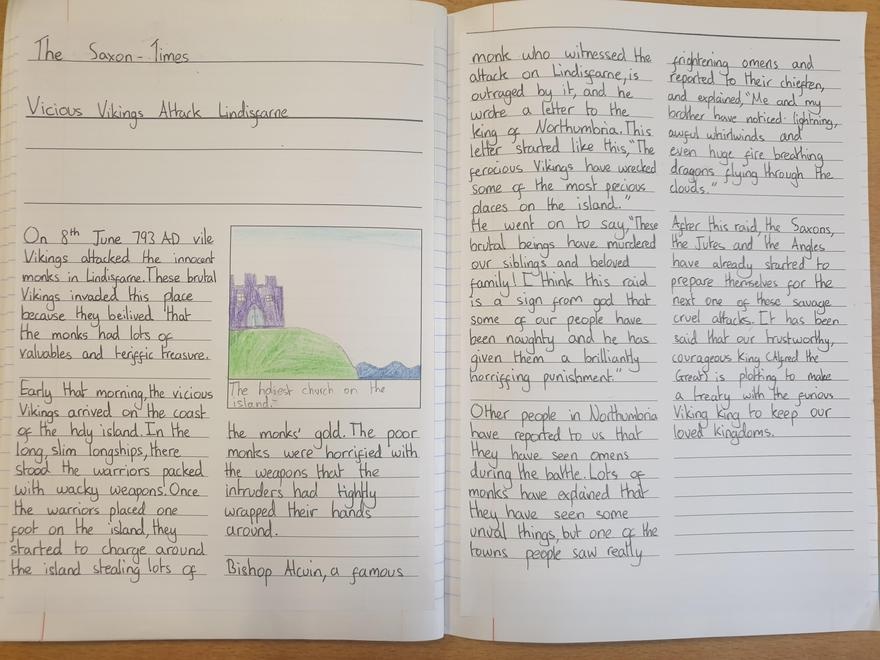 The Saxon-Times
Vicious Vikings Attack Lindisfarne
On 8th June 793 AD vile
Vikings attacked the innocent
monks in Lindisfarne. These brutal
Vikings invaded this place
because they beilived that
the monks had lots of
valuables and teriffic treasure.
Early that morning, the vicious
Vikings arrived on the coast
of the holy island. In the
long, slim longships, there
stood the warriors packed
with wacky weapons. Once
the warriors placed one
foot on the island, they
started to charge around
the island stealing lots of
The holiest church on the
island.
the monks' gold. The poor
monks were horrified with
the weapons that the
intruders had tightly
wrapped their hands
around.
Bishop Alcuin, a famous
monk who witnessed the
attack on Lindisfarne, is
outraged by it, and he
wrote a letter to the
king of Northumbria. This
letter started like this, "The
ferocious Vikings have wrecked
some of the most precious
places on the island."
He went on to say, "These
brutal beings have murdered
our siblings and beloved
family! I think this raid
is a sign from god that
some of our people have
been naughty and he has
given them a brilliantly
horrifing punishment."
Other people in Northumbria
have reported to us that
they have seen omens
during the battle. Lots of
monks have explained that
they have seen some
things, but one of the
towns people saw really
frightening omens and
reported to their chieften,
and explained, "Me and my
brother have noticed: lightning,
awful whirlwinds and
even huge fire breathing
dragons flying through the
clouds."
After this raid, the Saxons,
the Jutes and the Angles
have already started to
prepare themselves for the
next one of those savage
cruel attacks. It has been
said that our trustworthy,
courageous king (Alfred the
Great) is plotting to make
a treaty with the furious
Viking king to keep our
loved kingdoms.